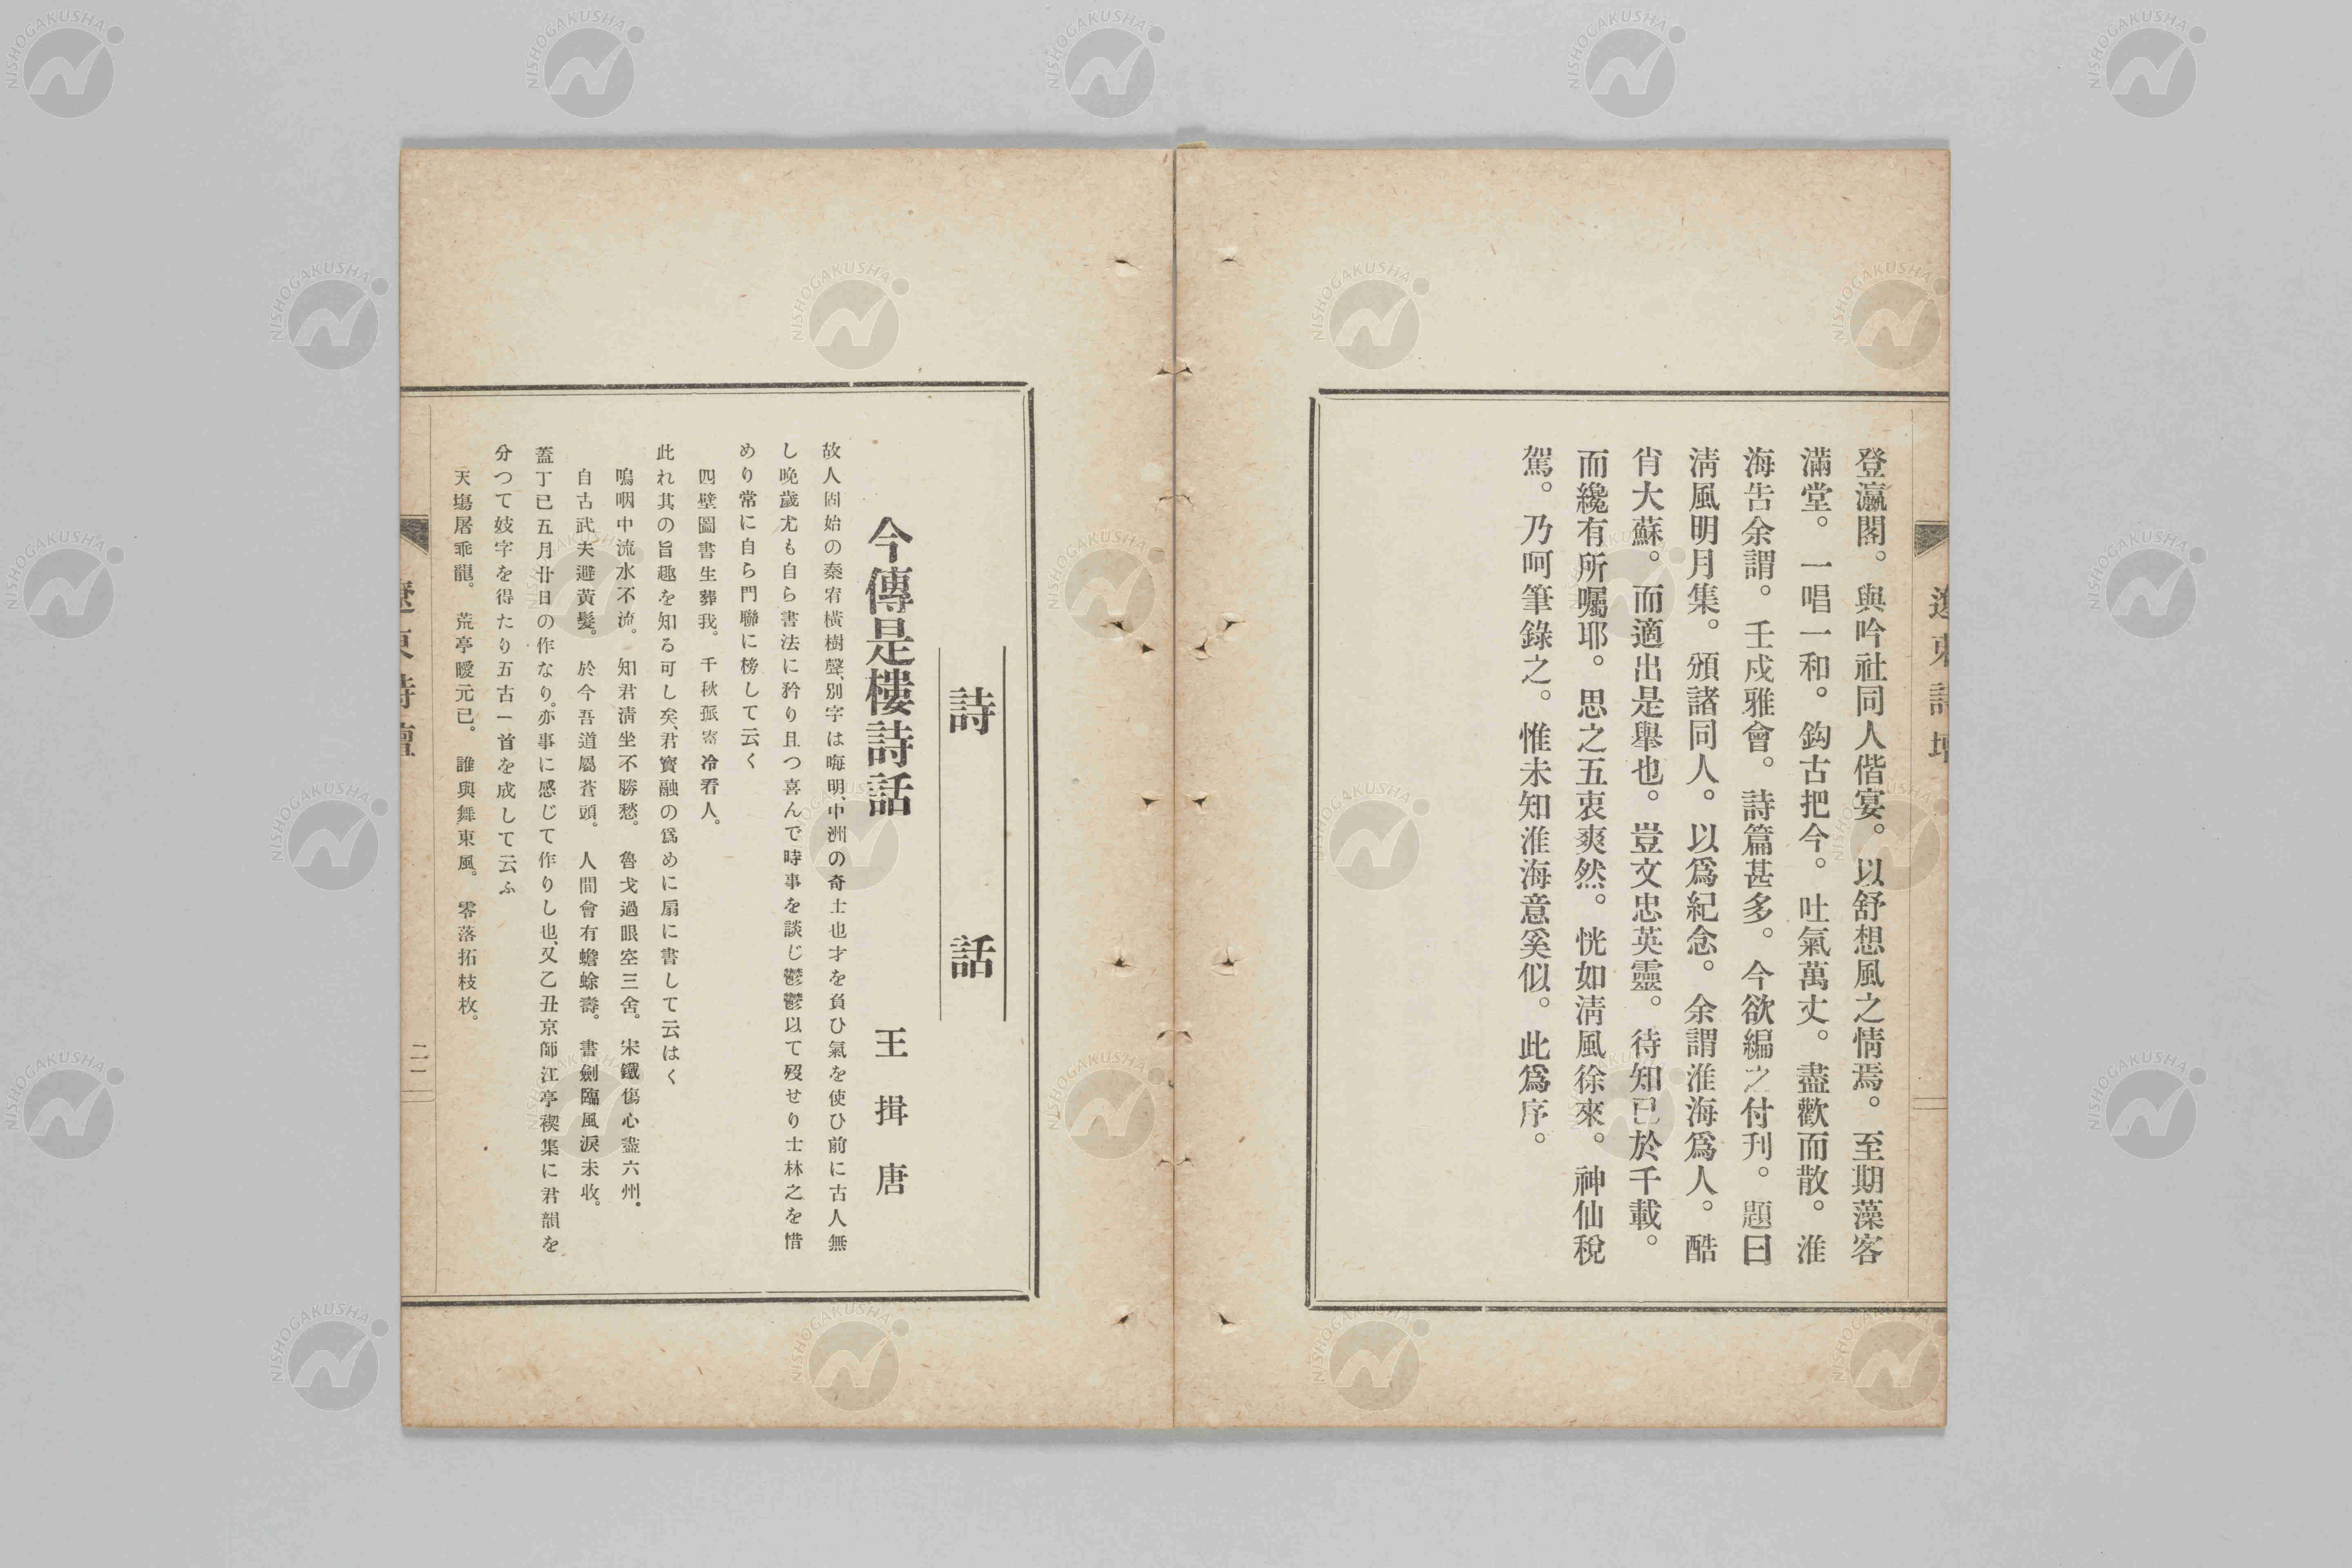 遼東詩壇
登瀛閣。與吟社同人偕宴。以舒想風之情焉。至期藻客
滿堂。一唱一和。鈎古把今。吐氣萬丈。盡歡而散。淮
海告余謂。壬戌雅會。詩篇甚多。今欲編之付刊。題曰
淸風明月集。頒諸同人。以爲紀念。余謂淮海爲人。酷
肖大蘇。而適出是舉也。豈文忠英靈。待知已於千載。
而纔有所囑耶。思之五衷爽然。恍如淸風徐來。神仙稅
駕。乃呵筆錄之。惟未知淮海意奚似。此爲序。
詩話
今傳是樓詩話
王揖唐
故人固始の秦宥橫樹聲、別字は晦明、中洲の奇士也才を負ひ氣を使ひ前に古人無
し晚歲尤も自ら書法に矜り且つ喜んで時事を談じ鬱鬱以て歿せり士林之を惜
めり常に自ら門聯に榜して云く
四壁圖書生葬我。千秋孤寄冷看人。
此れ其の旨趣を知る可し矣、君實融の爲めに扇に書して云はく
嗚咽中流水不流。知君淸坐不勝愁。魯戈過眼空三舍。宋鐵傷心盡六州。
自古武夫避黃髮。於今吾道屬蒼頭。人間會有蟾蜍壽。書劍臨風淚未收。
蓋丁巳五月廿日の作なり。亦事に感じて作りし也、又乙丑京師江亭禊集に君韻を
分つて妓字を得たり五古一首を成して云ふ
天塲屠乖龍。荒亭曖元已。誰與舞東風。零落拓枝枚。
遼東詩壇
二一
NISHOGAKUSHA